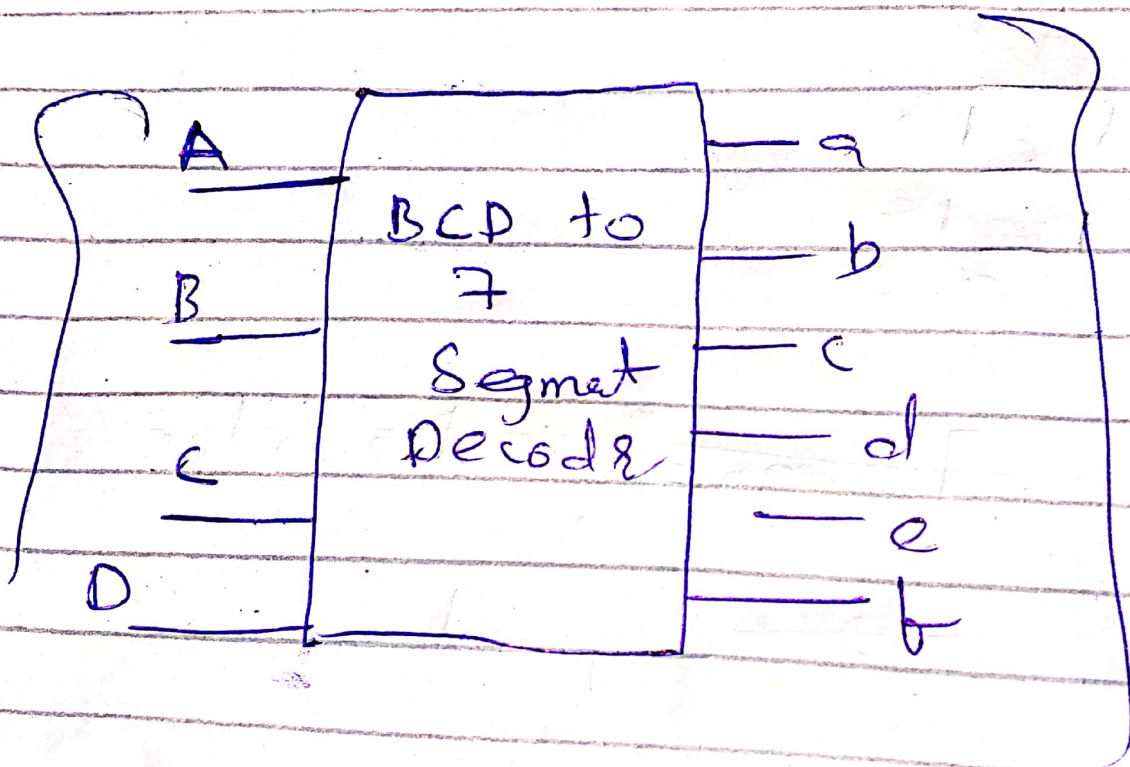 A
B
C
D
BCD to
7
Segmet
Decodr
a
b
c
d
e
f